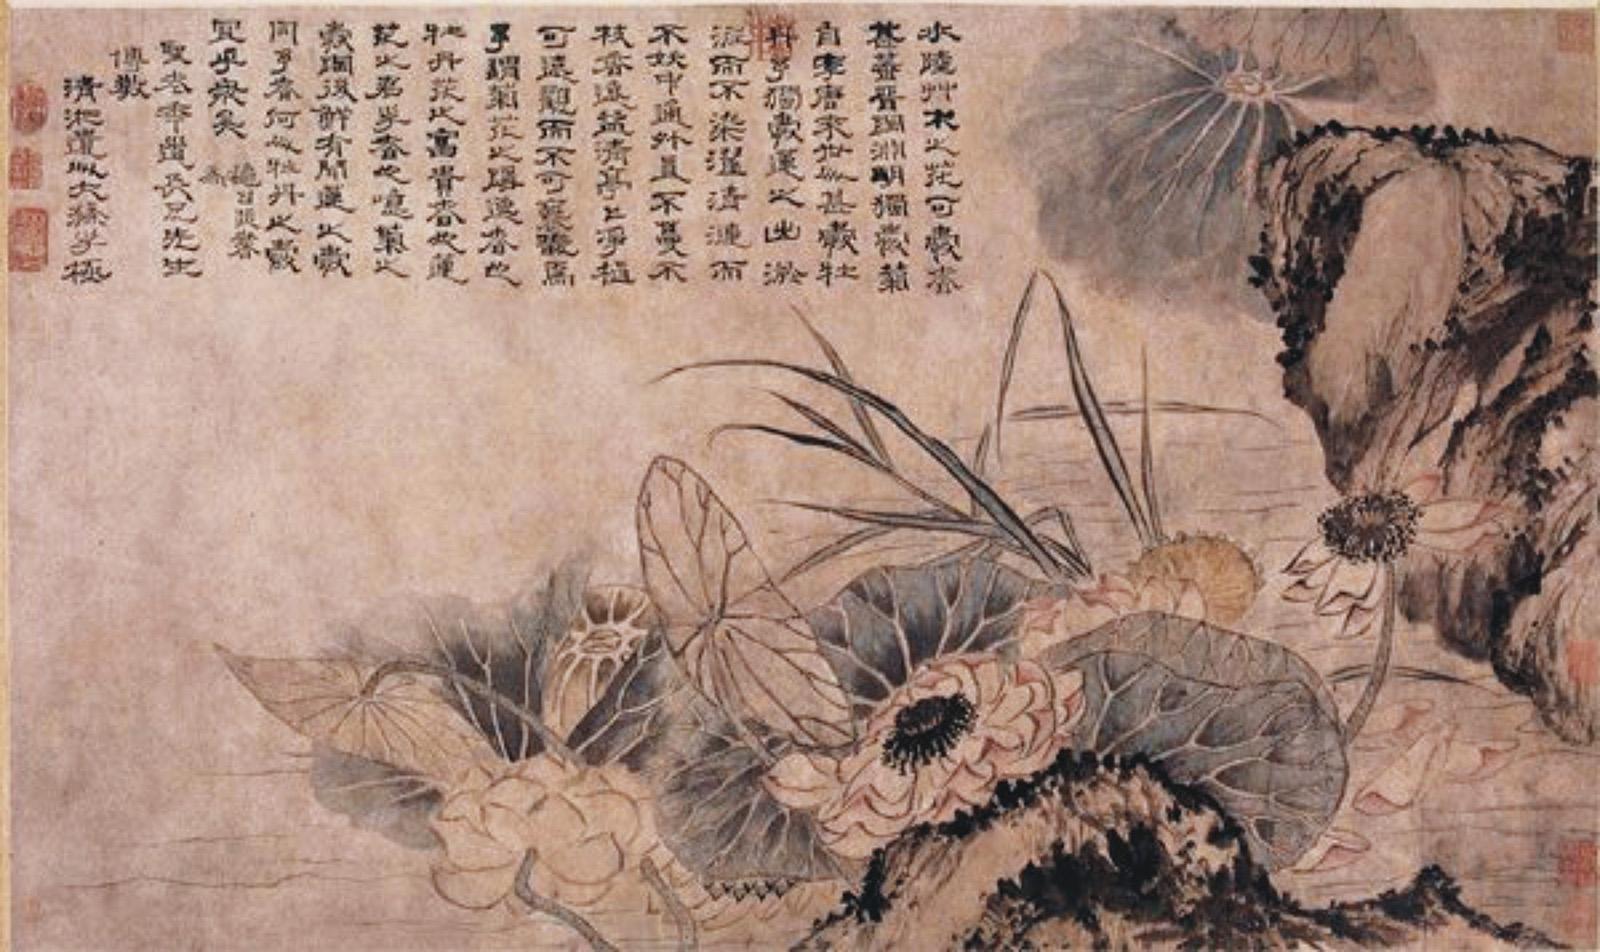 水陸艸木之花可愛者
甚蕃晉陶淵明獨愛菊
自李唐來世人甚愛牡
丹予獨愛蓮之出淤
泥而不染濯清漣而
不妖中通外直不蔓不
枝香遠益清亭亭淨植
可遠觀而不可褻翫焉
予謂菊花之隱逸者也
牡丹花之富貴者也蓮
花之君子者也噫菊之
愛陶後鮮有聞蓮之愛
同予者何人牡丹之愛
宜乎衆矣
聖老年長兄先生
博教
清湘遺人大滌子極